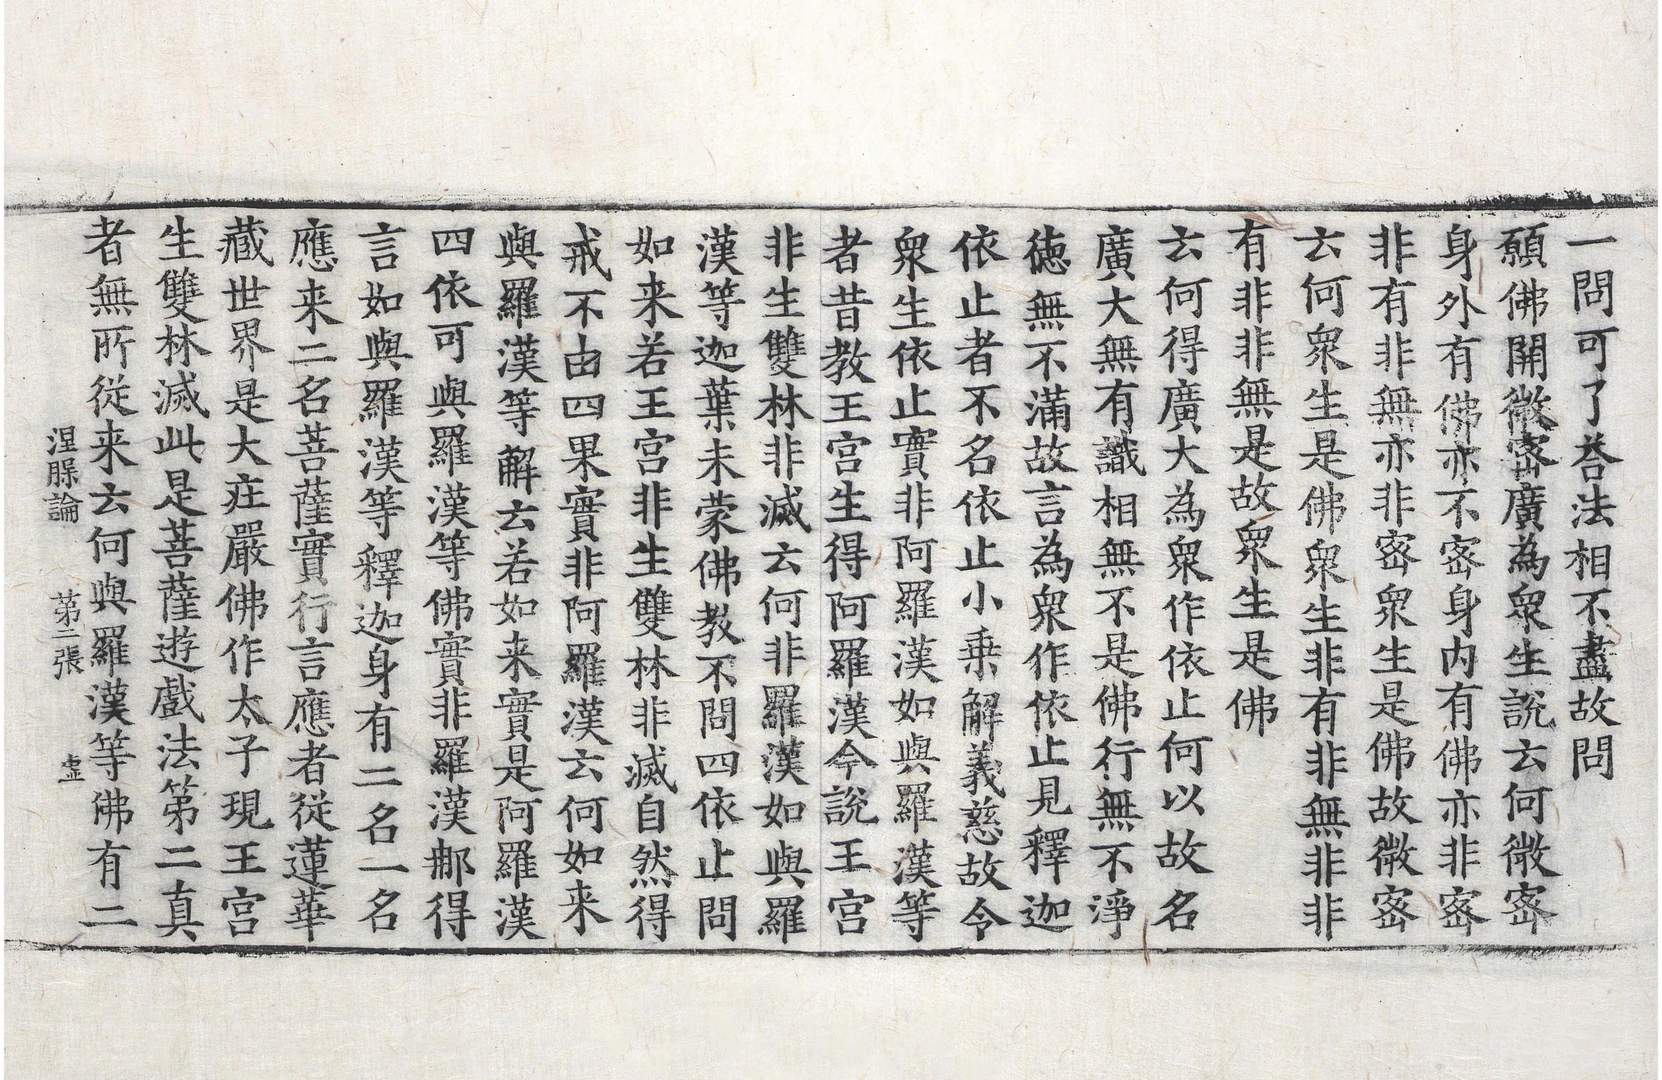 一問可了荅法相不盡故問
願佛開微宻廣為衆生說云何微宻
身外有佛亦不宻身内有佛亦非宻
非有非無亦非宻衆生是佛故微宻
云何衆生是佛衆生非有非無非非
有非非無是故衆生是佛
云何得廣大為衆作依止何以故名
廣大無有識相無不是佛行無不淨
徳無不滿故言為衆作依止見釋迦
依止者不名依止小乗解義慈故今
衆生依止實非阿羅漢如與羅漢等
者昔教王宫生得阿羅漢今說王宫
非生雙林非滅云何非羅漢如與羅
漢等迦葉未蒙佛教不問四依止問
如来若王宫非生雙林非滅自然得
戒不由四果實非阿羅漢云何如来
與羅漢等解云若如来實是阿羅漢
四依可與羅漢等佛實非羅漢那得
言如與羅漢等釋迦身有二名一名
應来二名菩薩實行言應者從蓮華
藏世界是大庄嚴佛作太子現王宫
生雙林滅此是菩薩遊戲法第二真
者無所從来云何與羅漢等佛有二
涅槃論　第二張　虚